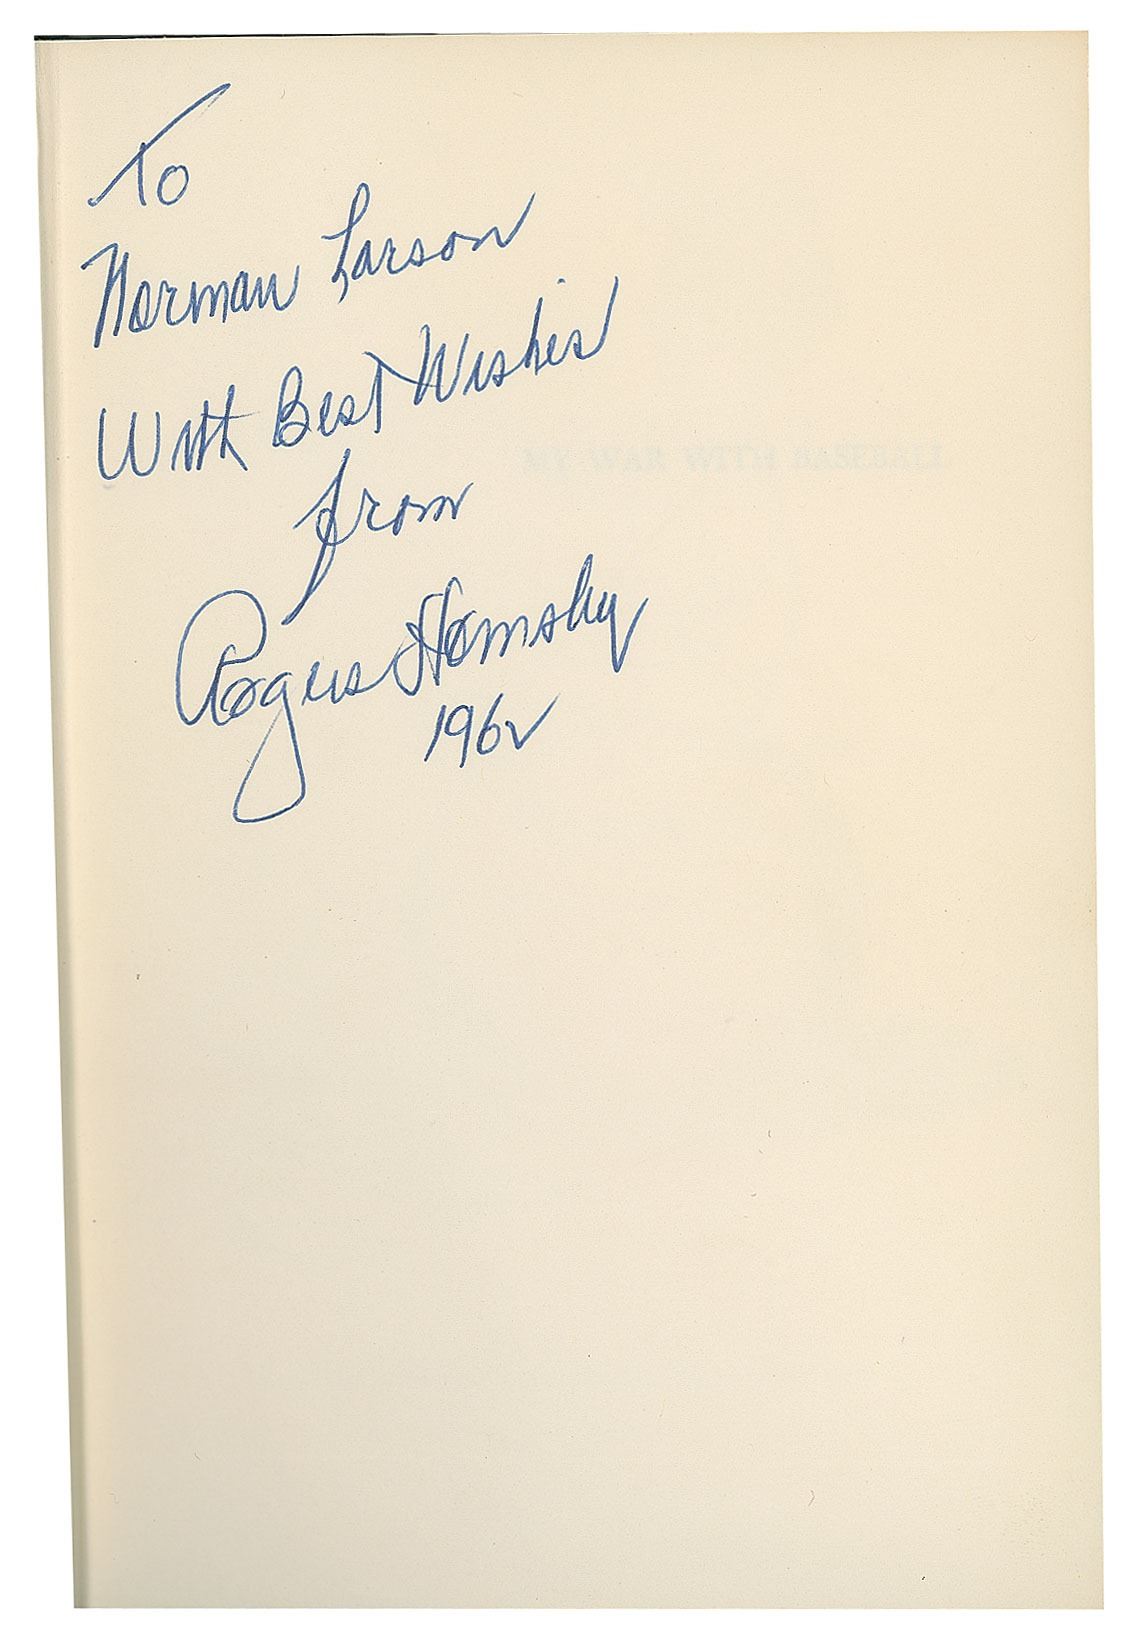 To
Norman Larson
With Best Wishes
from
Rogers Hornsby
1962
MY WAR WITH BASEBALL